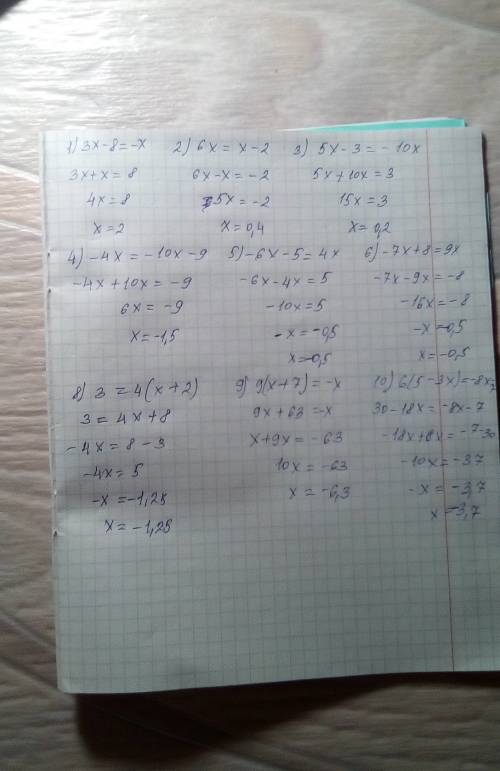 1) 3x-8=-x
3x+x=8
4x=8
x=2
2) 6x=x-2
6x-x=-2
5x=-2
x=0,4
3) 5x-3=-10x
5x+10x=3
15x=3
x=0,2
4) -4x=-10x-9
-4x+10x=-9
6x=-9
x=-1,5
5) -6x-5=4x
-6x-4x=5
-10x=5
-x=-0,5
x=-0,5
6) -7x+8=9x
-7x-9x=-8
-16x=-8
-x=-0,5
x=-0,5
8) 3=4(x+2)
3=4x+8
-4x=8-3
-4x=5
-x=-1,25
x=-1,25
9) 9(x+7)=-x
9x+63=-x
x+9x=-63
10x=-63
x=-6,3
10) 6(5-3x)=-8x-7
30-18x=-8x-7
-18x+8x=-7-30
-10x=-37
-x=-3,7
x=-3,7